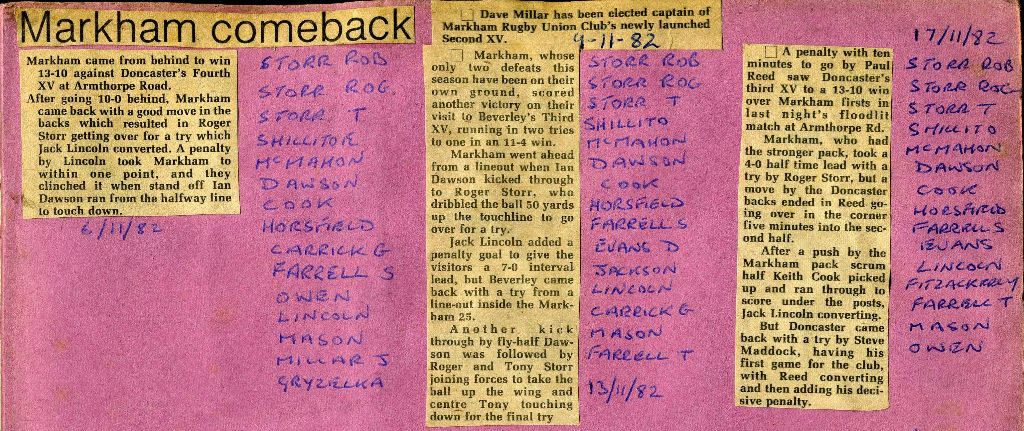 Markham comeback
Markham came from behind to win
13-10 against Doncaster's Fourth
XV at Armthorpe Road.
After going 10-0 behind, Markham
came back with a good move in the
backs which resulted in Roger
Storr getting over for a try which
Jack Lincoln converted. A penalty
by Lincoln took Markham to
within one point, and they
clinched it when stand off Ian
Dawson ran from the halfway line
to touch down.
6/11/82
STORR ROB
STORR ROG.
STORR T
SHILLITOR
MCMAHON
DAWSON
COOK
HORSFIELD
CARRICK G
FARRELL S
OWEN
LINCOLN
MASON
MILLAR J
GRYZELKA
Dave Millar has been elected captain of
Markham Rugby Union Club's newly launched
Second XV.
9-11-82
Markham, whose
only two defeats this
season have been on their
own ground, scored
another victory on their
visit to Beverley's Third
XV, running in two tries
to one in an 11-4 win.
Markham went ahead
from a lineout when Ian
Dawson kicked through
to Roger Storr, who
dribbled the ball 50 yards
up the touchline to go
over for a try.
Jack Lincoln added a
penalty goal to give the
visitors a 7-0 interval
lead, but Beverley came
back with a try from a
line-out inside the Mark-
ham 25.
Another kick
through by fly-half Daw-
son was followed by
Roger and Tony Storr
joining forces to take the
ball up the wing and
centre Tony touching
down for the final try
STORR ROB
STORR ROG
STORR T
SHILLITO
MCMAHON
DAWSON
COOK
HORSFIELD
FARRELL S
EVANS D
JACKSON
LINCOLN
CARRICK G
MASON
FARRELL T
13/11/82
A penalty with ten
minutes to go by Paul
Reed saw Doncaster's
third XV to a 13-10 win
over Markham firsts in
last night's floodlit
match at Armthorpe Rd.
Markham, who had
the stronger pack, took a
4-0 half time lead with a
try by Roger Storr, but a
move by the Doncaster
backs ended in Reed go-
ing over in the corner
five minutes into the sec-
ond half.
After a push by the
Markham pack scrum
half Keith Cook picked
up and ran through to
score under the posts,
Jack Lincoln converting.
But Doncaster came
back with a try by Steve
Maddock, having his
first game for the club,
with Reed converting
and then adding his deci-
sive penalty.
17/11/82
STORR ROB
STORR ROG
STORR T
SHILLITO
MCMAHON
DAWSON
COOK
HORSFIELD
FARRELL S
EVANS
LINCOLN
FITZACKERLY
FARRELL T
MASON
OWEN